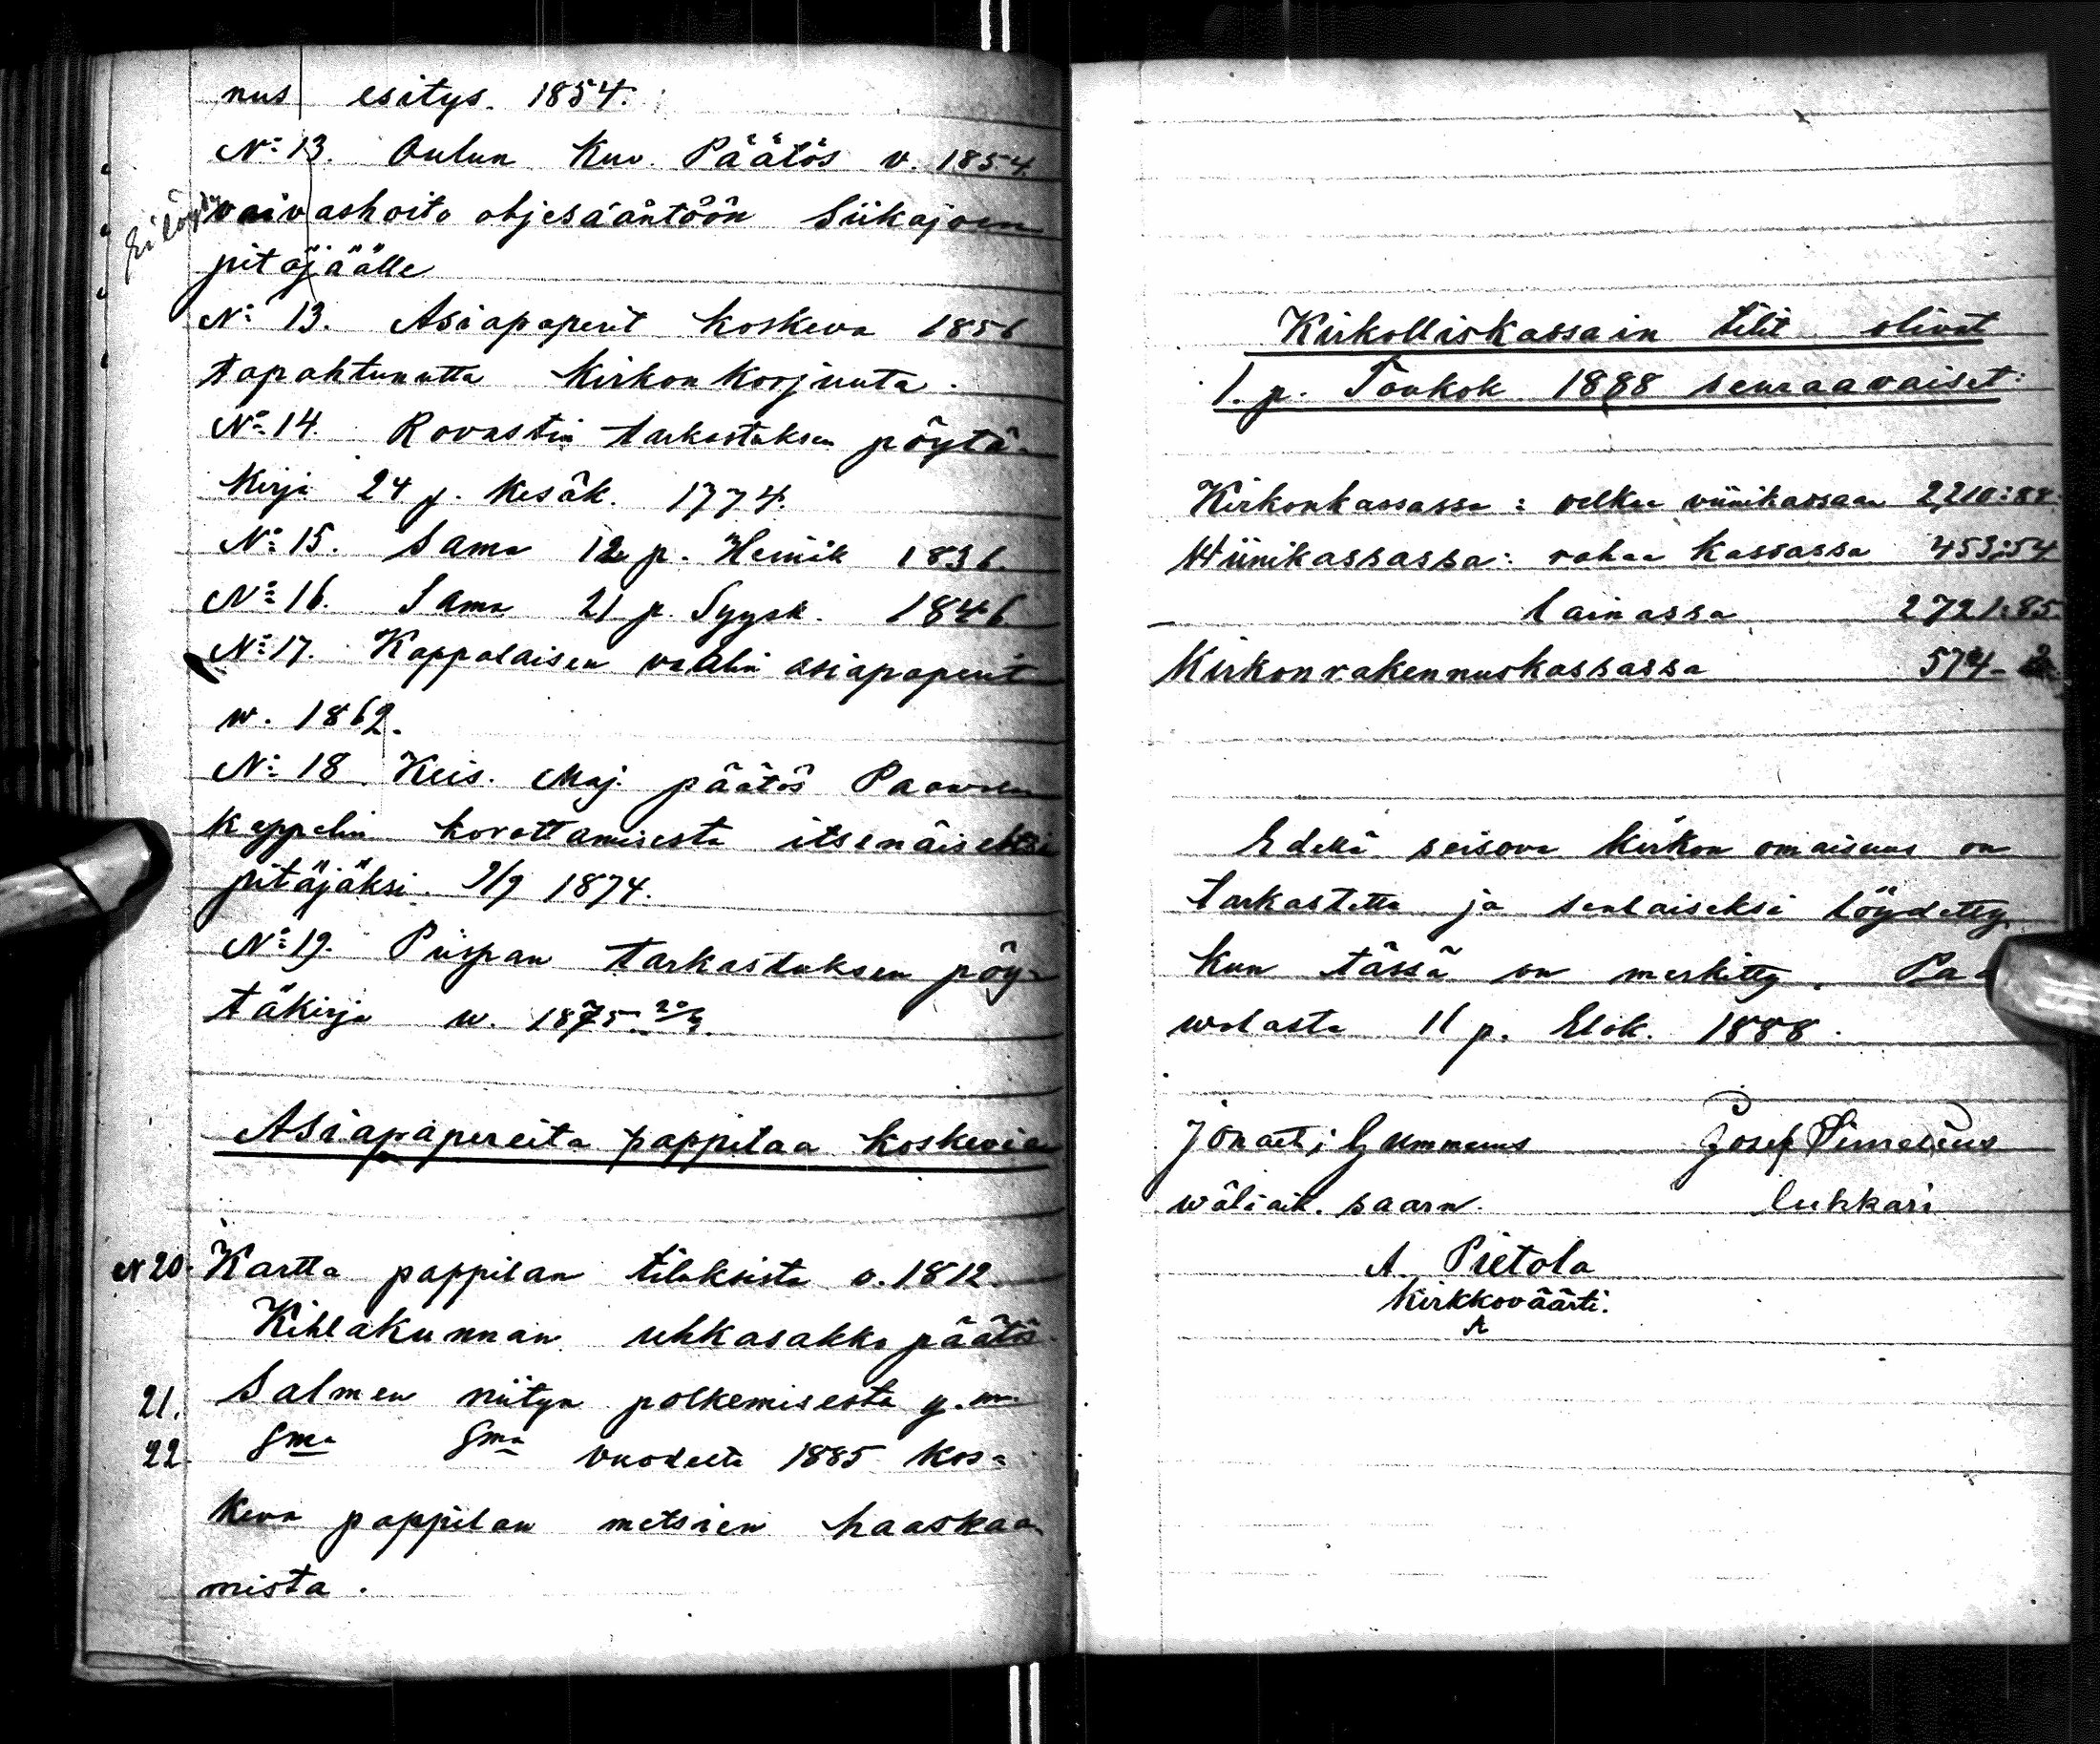 nus esitys. 1854.
No 13. Oulun Kuv. Päätös v. 1854.
Ei löydy
vaivashoito ohjesääntöön Siikajoen
pitäjäälle
No 13. Asiapaperit koskeva 1856
tapahtunutta kirkon korjuuta.
No 14. Rovastin tarkastuksen pöytä-
kirja 24 p. Kesäk. 1774.
No 15. Sama 12 p. Heinik 1836.
No 16. Sama 21 p. Syysk. 1846
No 17. Kappalaisen vaalin asiapaperit
w. 1862.
No 18. Keis. Maj. päätös Paavolan
kappelin korottamisesta itsenäiseksi
pitäjäksi. 9/9 1874.
No 19. Piispan tarkastuksen pöy-
täkirja w. 1875
Asiapapereita pappilaa koskevia
N 20. Kartta pappilan tiluksista v. 1812.
Kihlakunnan uhkasakko päätös
21. Salmen niityn polkemisesta y.m.
22. Sma Sma vuodelta 1885 kos-
keva pappilan metsien haaskaa-
mista.
Kirkolliskassain tilit olivat
1. p. Toukok 1888 seuraavaiset:
Kirkonkassassa: velkaa viinikassaan 2,210:88.
Wiinikassassa: rahaa kassassa 453:54
lainassa 2721:85.
Kirkonrakennuskassassa 574-
Edellä seisova kirkon omaisuus on
tarkastettu ja senlaiseksi löydetty
kun tässä on merkitty. Paa
wolasta 11 p. Elok. 1888.
Jonath; Gummerus Josef Simelius
wäliaik. saarn. lukkari
A Pietola
Kirkkoväärti.